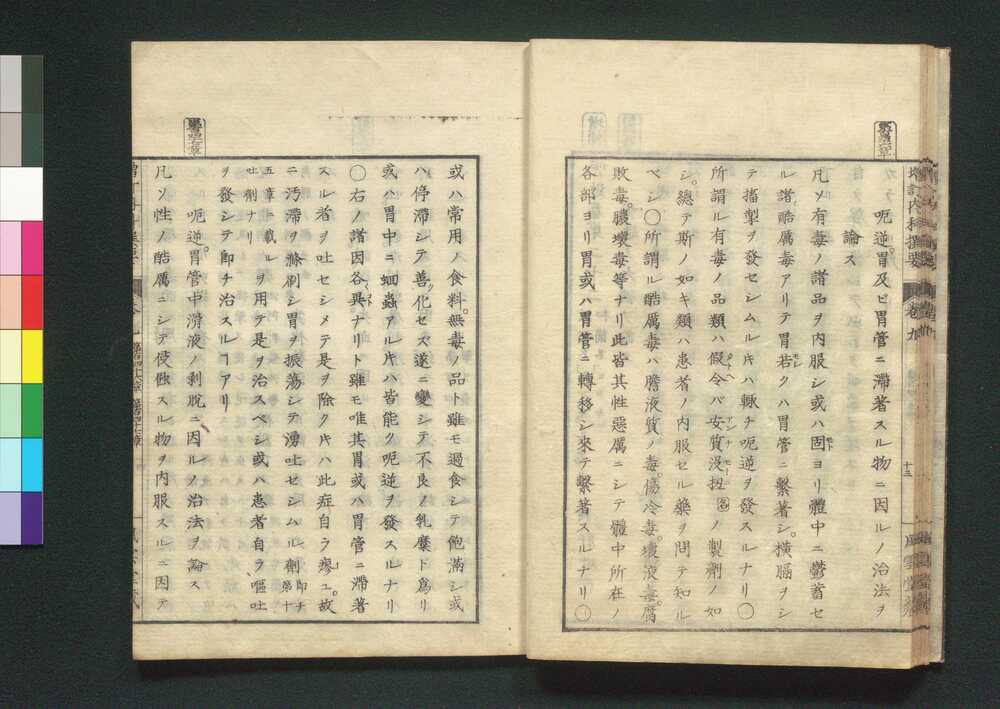 呃逆。胃及ビ胃管ニ滯著スル物ニ因ルノ治法ヲ
論ス
凡ソ有毒ノ諸品ヲ内服シ或ハ固ヨリ體中ニ鬱蓄セ
ル諸酷厲毒アリテ胃若クハ胃管ニ繫著シ。橫膈ヲシ
テ搐掣ヲ發セシムル𪜈ハ輙チ呃逆ヲ發スルナリ〇
所謂ル有毒ノ品類ハ假令バ安質没扭ノ製劑ノ如
シ。總テ斯ノ如キ類ハ患者ノ内服セル藥ヲ問テ知ル
ベシ〇所謂ル酷厲毒ハ膽液質ノ毒。傷冷毒。壞液毒。腐
敗毒。膿壞毒等ナリ此皆其性惡厲ニシテ體中所在ノ
各部ヨリ胃或ハ胃管ニ轉移シ來テ繫著スルナリ〇
增訂内科撰要
卷九
十三
或ハ常用ノ食料。無毒ノ品ト雖モ過食シテ飽滿シ或
ハ停滯シテ善ク化セズ遂ニ變シテ不良ノ乳糜ト爲リ
或ハ胃中ニ蛔蟲アル𪜈ハ皆能ク呃逆ヲ發スルナリ
〇右ノ諸因各異ナリト雖モ唯其胃或ハ胃管ニ滯著
スル者ヲ吐セシメテ是ヲ除ク𪜈ハ此症自ラ瘳ユ。故
ニ汚滯ヲ滌刷シ胃ヲ振蕩シテ湧吐セシムル劑即チ第十
五章ニ載ル吐劑ナリヲ用テ是ヲ治スベシ或ハ患者自ラ嘔吐
ヲ發シテ即チ治スルヿアリ
呃逆。胃管中滑液ノ剥脫ニ因ルノ治法ヲ論ス
凡ソ性ノ酷厲ニシテ侵蝕スル物ヲ内服スルニ因テ